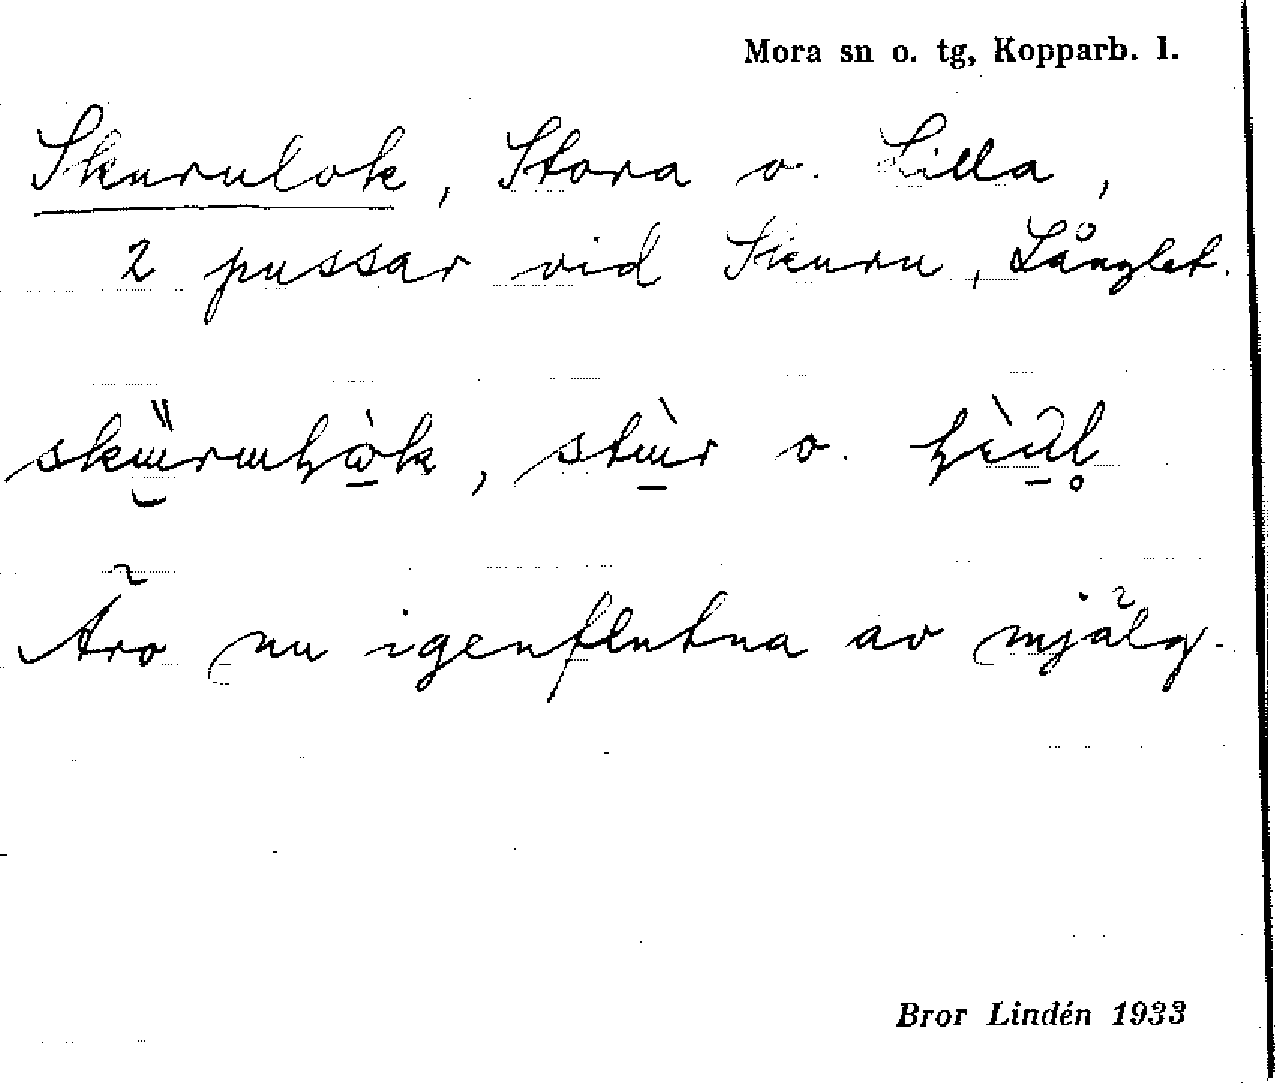 Mora sn o. tg, Kopparb. l.
Skurulok, Stora o. Lilla,
2 pussar vid Skuru, Långlet.
o.
Äro nu igenflutna av mjälg.
Bror Lindén 1933